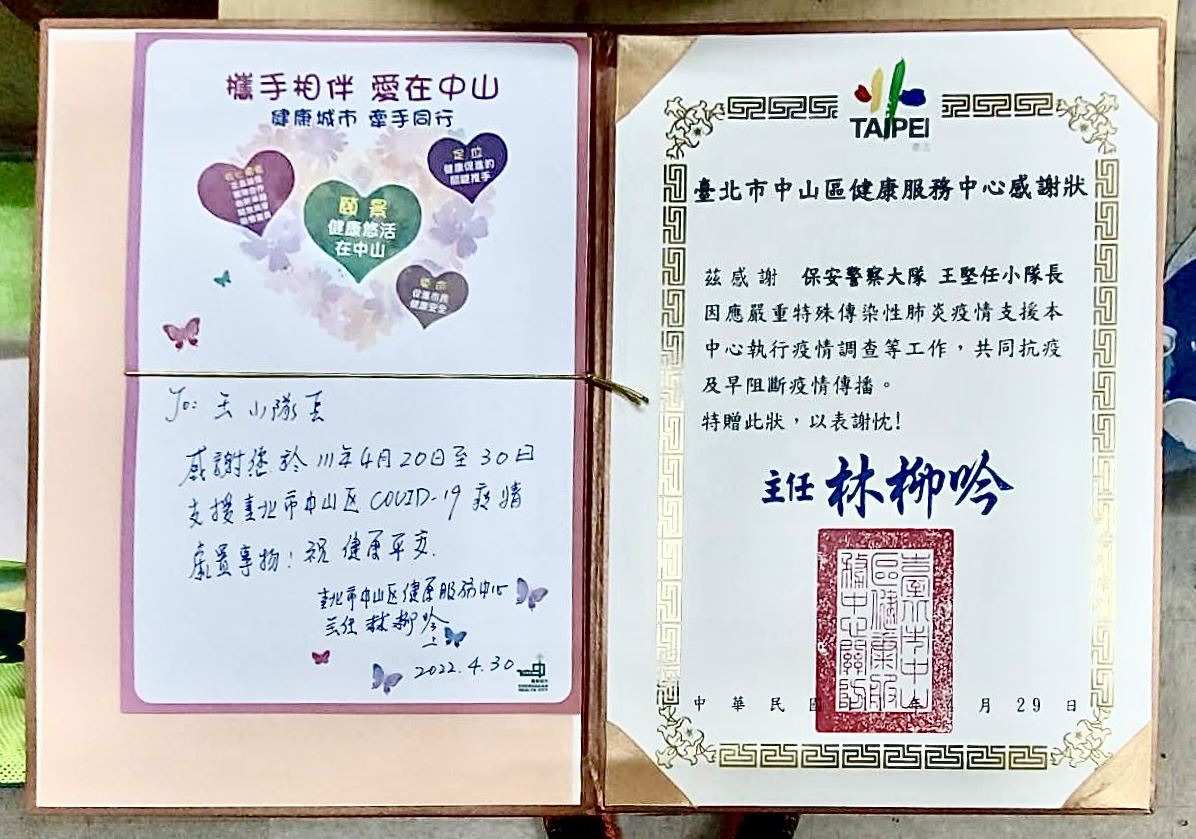 攜手相伴 愛在中山
健康城市 牽手同行
定位
健康促進的
關鍵推手
願景
健康悠活
在中山
使命
保護市民
健康安全
To: 王小隊長
感謝您於111年4月20日至30日
支援臺北市中山区COVID-19疫情
處置事物!祝 健康平安.
臺北市中山区健康服務中心
主任 林柳吟
上
2022.4.30
TAIPEI
臺北
臺北市中山區健康服務中心感謝狀
茲感謝 保安警察大隊 王堅任小隊長
因應嚴重特殊傳染性肺炎疫情支援本
中心執行疫情調查等工作，共同抗疫
及早阻斷疫情傳播。
特贈此狀，以表謝忱!
主任 林柳吟
臺北市中山
區健康服
務中心關防
中華民國 年 4月29日